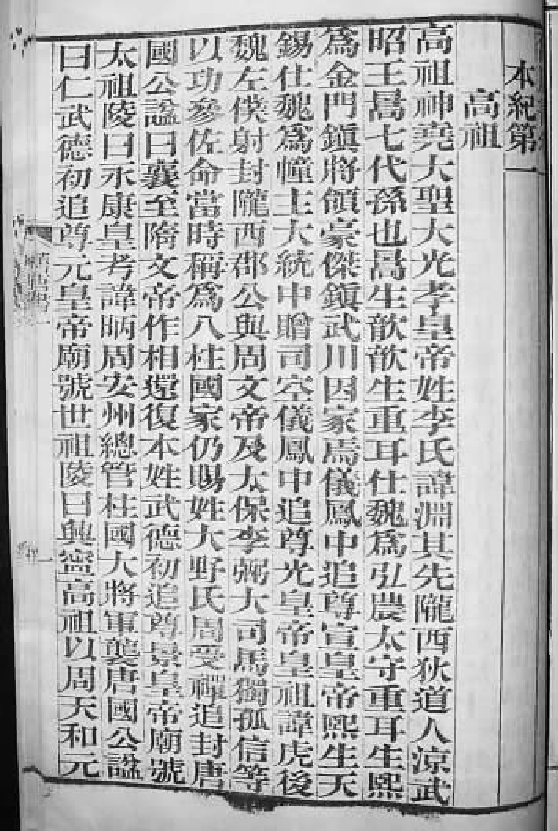 本紀第一
高祖
高祖神堯大聖大光孝皇帝姓李氏諱淵其先隴西狄道人涼武
昭王暠七代孫也暠生歆歆生重耳仕魏爲弘農太守重耳生熙
爲金門鎮將領豪傑鎮武川因家焉儀鳳中追尊宣皇帝熙生天
錫仕魏爲幢主大統中贈司空儀鳳中追尊光皇帝皇祖諱虎後
魏左僕射封隴西郡公與周文帝及太保李弼大司馬獨孤信等
以功參佐命當時稱爲八柱國家仍賜姓大野氏周受禪追封唐
國公諡曰襄至隋文帝作相還復本姓武德初追尊景皇帝廟號
太祖陵曰永康皇考諱昞周安州總管柱國大將軍襲唐國公諡
曰仁武德初追尊元皇帝廟號世祖陵曰興寧高祖以周天和元